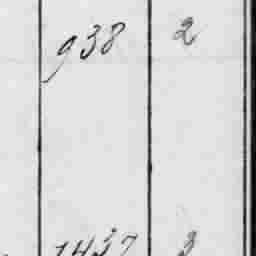 938 2
1437 3